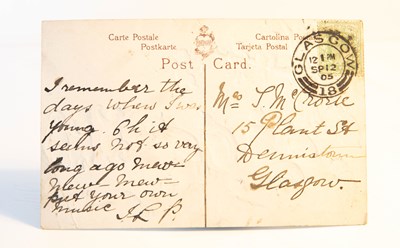 Carte Postale
Postkarte
Cartolina Postale
Tarjeta Postal
Post Card.
GLASGOW
12 PM
SP 12
05
18
I remember the
days when I was
young. Oh it
seems not so very
long ago mew-
mew- mew-
put your own
music
Mrs
15 Plant St
Dennistoun
Glasgow.